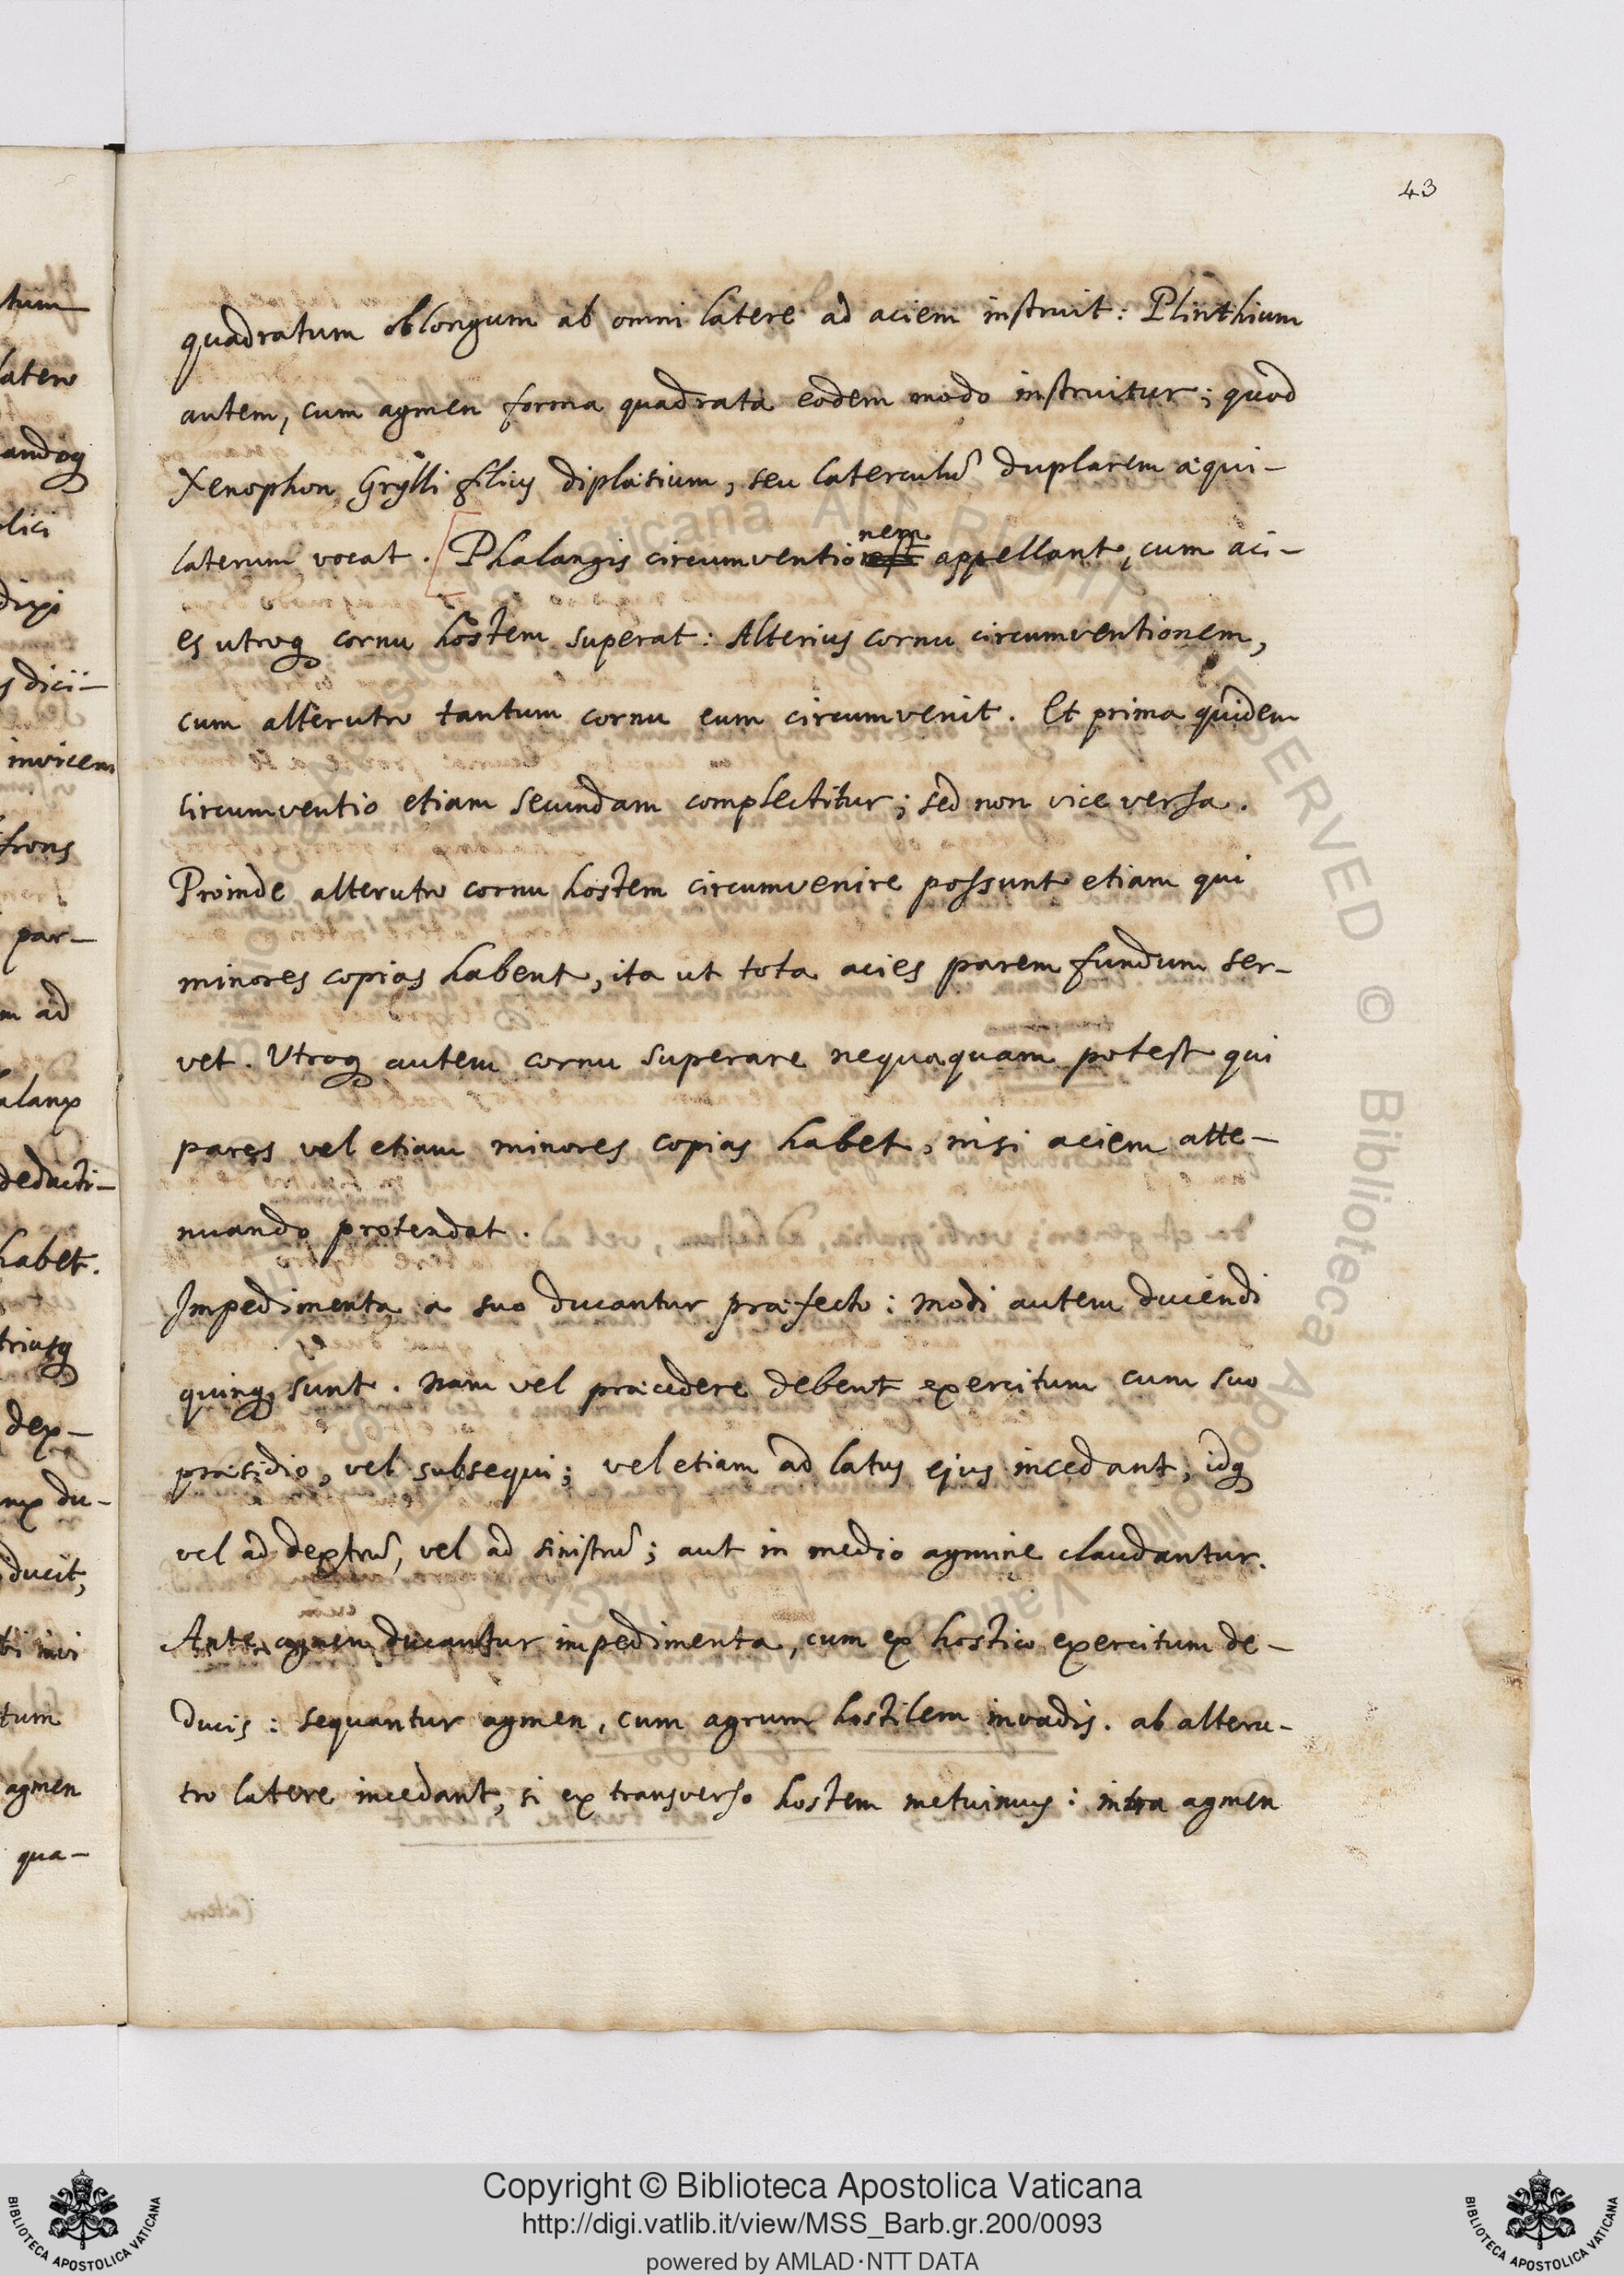 43
quadratum oblongum ab omni latere ad aciem instruit: Plinthium
autem, cum agmen forma quadrata eodem modo instruitur; quod
Xenophon Grylli filius diplasium, seu laterculũ duplarem æqui-
laterum vocat. [Phalangis circumventionem appellant, cum aci-
es utroq cornu hostem superat: Alterius cornu circumventionem,
cum alterutro tantum cornu eum circumvenit. Et prima quidem
circumventio etiam secundam complectitur; sed non vice versa.
Proinde alterutro cornu hostem circumvenire possunt etiam qui
minores copias habent, ita ut tota acies parem fundum ser-
vet. Utroq autem cornu superare nequaquam potest qui
pares vel etiam minores copias habet, nisi aciem atte-
nuando protendat.
Impedimenta a suo ducantur præfecto: modi autem ducendi
quinq sunt. Nam vel præcedere debent exercitum cum suo
præsidio, vel subsequi; vel etiam ad latus ejus incedant, idq
vel ad dextrũ, vel ad sinistrũ; aut in medio agmine claudantur.
Ante agmen ducantur impedimenta, cum ex hostico exercitum de-
ducis: sequantur agmen, cum agrum hostilem invadis. ab alteru-
tro latere incedant, si ex transverso hostem metuimus: intra agmen
tum
latere
andoq
plici
dixi
dici-
invicem
frons
par-
m ad
alanx
deducti-
habet.
triusq
dex-
nx du-
ducit,
tum
agmen
qua-
Copyright © Biblioteca Apostolica Vaticana
http://digi.vatlib.it/view/MSS_Barb.gr.200/0093
powered by AMLAD·NTT DATA
BIBLIOTECA APOSTOLICA VATICANA
BIBLIOTECA APOSTOLICA VATICANA